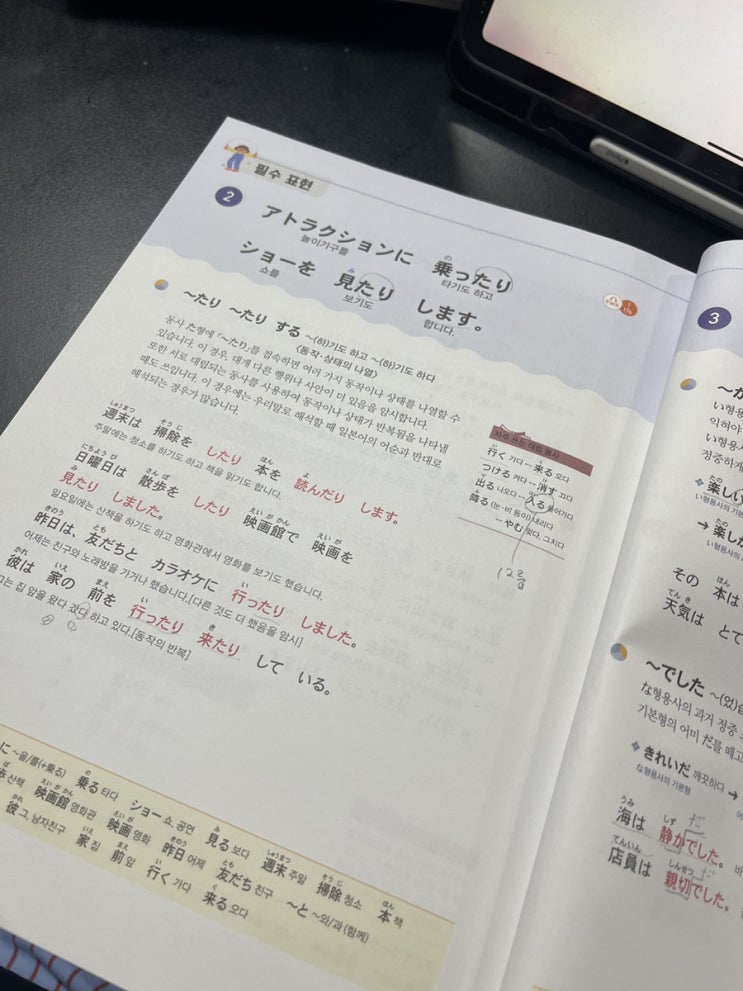 필수 표현
2
アトラクションに 乗ったり
の
놀이기구를 타기도 하고
ショーを 見たり します。
み
쇼를 보기도 합니다.
~たり ~たり する ~(하)기도 하고 ~(하)기도 하다
〈동작·상태의 나열〉
동사 た형에 「~たり」를 접속하면 여러 가지 동작이나 상태를 나열할 수
있습니다. 이 경우, 대개 다른 행위나 사안이 더 있음을 암시합니다.
또한 서로 대립되는 동사를 사용하여 동작이나 상태가 반복됨을 나타낼
때도 쓰입니다. 이 경우에는 우리말로 해석할 때 일본어의 어순과 반대로
해석되는 경우가 많습니다.
しゅうまつ そうじ ほん よ
週末は 掃除を したり 本を 読んだり します。
주말에는 청소를 하기도 하고 책을 읽기도 합니다.
にちようび さんぽ えいがかん えいが
日曜日は 散歩を したり 映画館で 映画を
み
見たり しました。
일요일에는 산책을 하기도 하고 영화관에서 영화를 보기도 했습니다.
きのう とも い
昨日は、友だちと カラオケに 行ったり しました。
어제는 친구와 노래방을 가거나 했습니다.[다른 것도 더 했음을 암시]
かれ いえ まえ い き
彼は 家の 前を 行ったり 来たり して いる。
그는 집 앞을 왔다 갔다 하고 있다.[동작의 반복]
② ①
자주 쓰는 대립 동사
行く 가다 ↔ 来る 오다
つける 켜다 ↔ 消す 끄다
出る 나오다 ↔ 入る 들어가다
降る (눈·비 등이) 내리다
↔ やむ 멎다, 그치다
1그룹
に ~을/를(+乗る) 乗る 타다 ショー 쇼, 공연 見る 보다 週末 주말 掃除 청소 本 책
산책 映画館 영화관 映画 영화 昨日 어제 友だち 친구 ~と ~와/과 (함께)
彼 그, 남자친구 家 집 前 앞 行く 가다 来る 오다
3
い형용사
익혀야
い형용사
정중하게
たの
楽しい
い형용사의 기본형
たの
→ 楽しか
い형용사
その 本は
ほん
てんき
天気は とて
~でした ~(었)
な형용사의 과거 정중
기본형의 어미 だ를 떼고
きれいだ 깨끗하다 →
な형용사의 기본형
うみ しず
海は 静かでした。
だ
てんいん しんせつ
店員は 親切でした。
だ